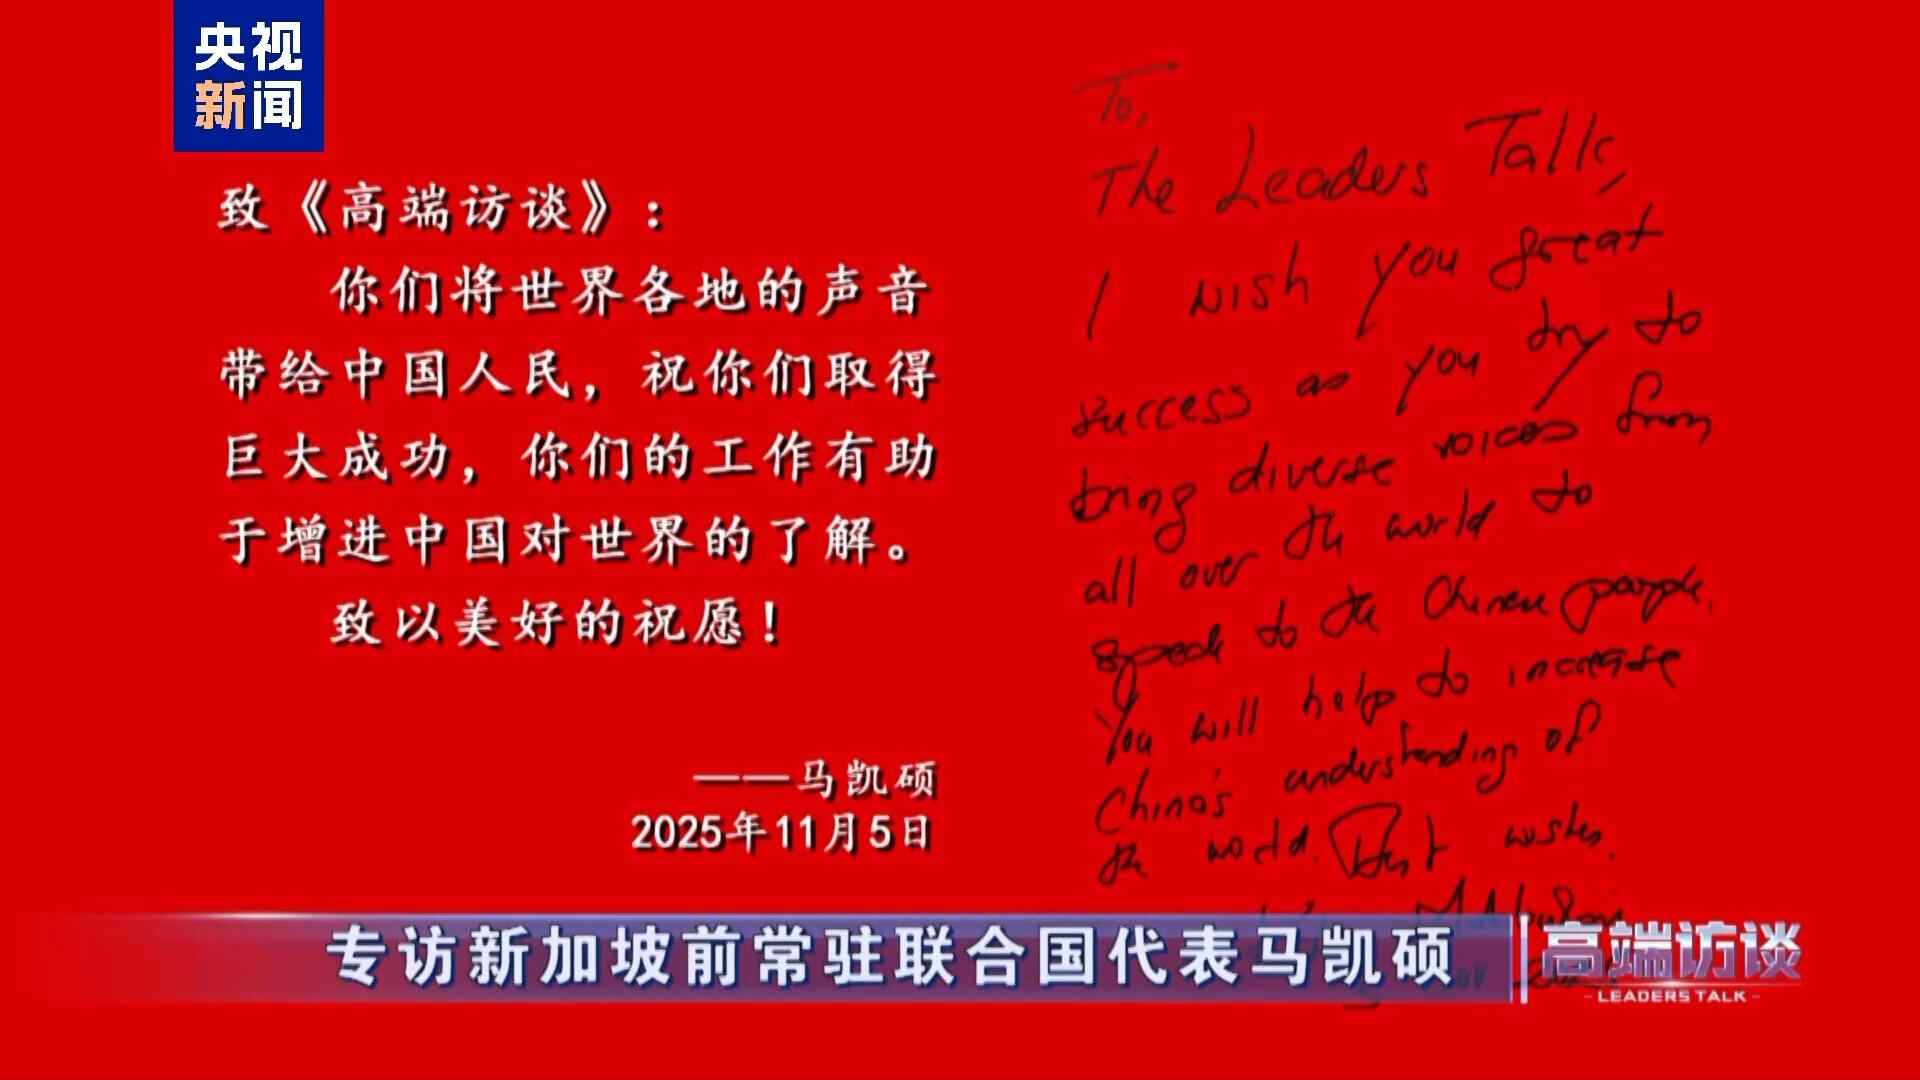 央视
新闻
致《高端访谈》：
你们将世界各地的声音
带给中国人民，祝你们取得
巨大成功，你们的工作有助
于增进中国对世界的了解。
致以美好的祝愿！
——马凯硕
2025年11月5日
To,
The Leaders Talk,
I wish you great
success as you try to
bring diverse voices from
all over the world to
speak to the Chinese people.
You will help to increase
China's understanding of
the world. Best wishes.
专访新加坡前常驻联合国代表马凯硕
高端访谈
LEADERS TALK